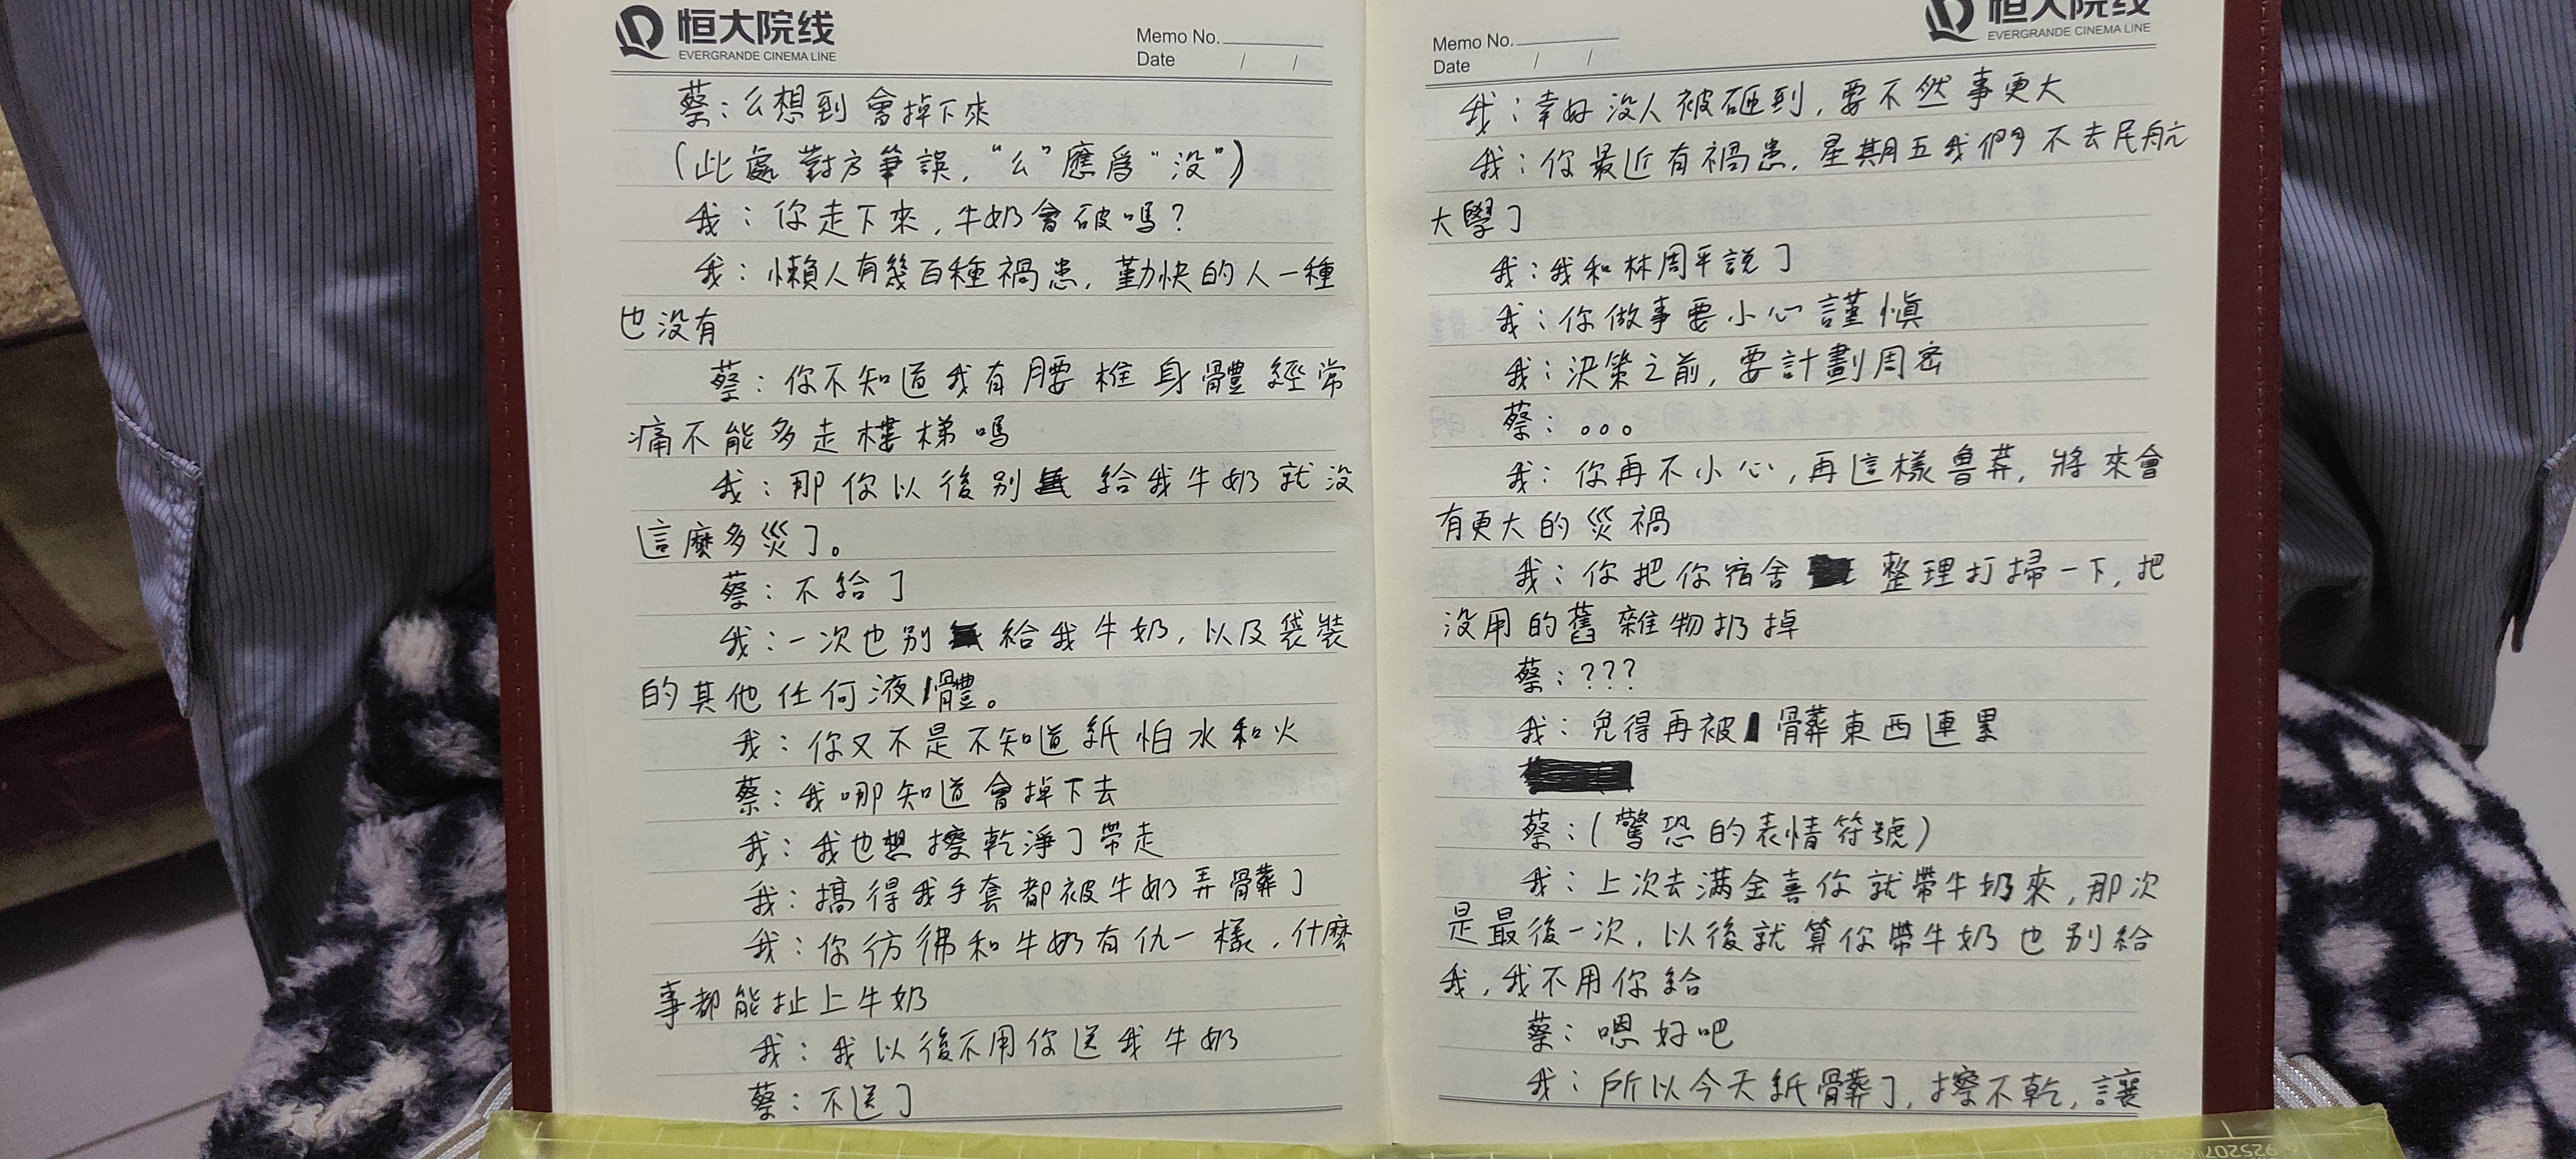 恒大院线
EVERGRANDE CINEMA LINE
Memo No.
Date / /
蔡：么想到會掉下來
（此處對方筆誤，“么”應爲“没”）
我：你走下來，牛奶會破嗎？
我：懶人有幾百種禍患，勤快的人一種
也没有
蔡：你不知道我有腰椎身體經常
痛不能多走樓梯嗎
我：那你以後别給我牛奶就没
這麽多災了。
蔡：不給了
我：一次也别給我牛奶，以及袋裝
的其他任何液體。
我：你又不是不知道紙怕水和火
蔡：我哪知道會掉下去
我：我也想擦乾淨了帶走
我：搞得我手套都被牛奶弄髒了
我：你彷彿和牛奶有仇一樣，什麽
事都能扯上牛奶
我：我以後不用你送我牛奶
蔡：不送了
恒大院线
EVERGRANDE CINEMA LINE
Memo No.
Date / /
我：幸好没人被砸到，要不然事更大
我：你最近有禍患，星期五我們不去民航
大學了
我：我和林周平説了
我：你做事要小心謹慎
我：決策之前，要計劃周密
蔡：。。。
我：你再不小心，再這樣魯莽，將來會
有更大的災禍
我：你把你宿舍整理打掃一下，把
没用的舊雜物扔掉
蔡：???
我：免得再被髒東西連累
蔡：（驚恐的表情符號）
我：上次去滿金喜你就帶牛奶來，那次
是最後一次，以後就算你帶牛奶也别給
我，我不用你給
蔡：嗯好吧
我：所以今天紙髒了，擦不乾，讓